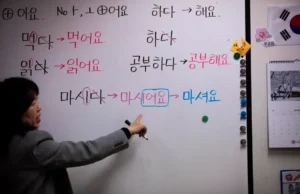 아요. No ㅏ, ㅗ 어요 하다 → 해요.
먹다 → 먹어요 하다
읽다 → 읽어요 공부하다 → 공부해요.
마시다 → 마시어요 → 마셔요